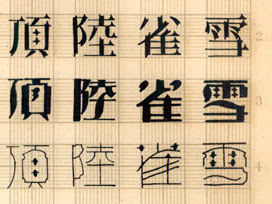 頂陸雀雪 2
頂陸雀雪 3
頂陸雀雪 4